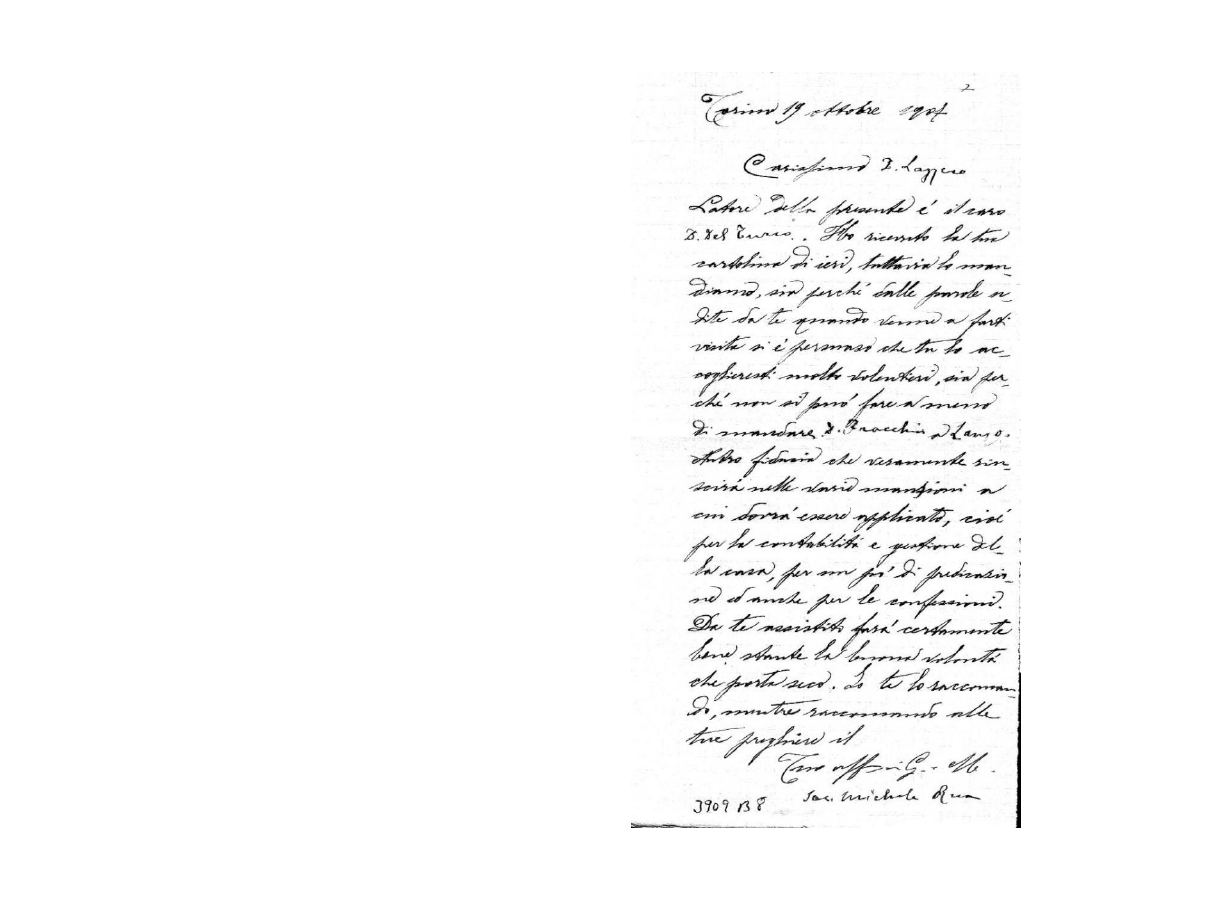 2
Torino 19 ottobre 1904
Carissimo D. Lazzero
Latore della presente è il caro
D. Del Turco. Ho ricevuto la tua
cartolina di ieri, tuttavia lo man-
diamo, sia perché dalle parole u-
dite da te quando venne a farti
visita si è persuaso che tu lo ac-
coglieresti molto volentieri, sia per-
ché non si può fare a meno
di mandare D. Fracchia a Lanzo.
Nutro fiducia che veramente riu-
scirà nelle varie mansioni a
cui dovrà essere applicato, cioè
per la contabilità e gestione del-
la casa, per un po' di predicazio-
ne ed anche per le confessioni.
Da te assistito farà certamente
bene stante la buona volontà
che porta seco. Io te lo raccoman-
do, mentre raccomando alle
tue preghiere il
Tuo aff in G. e M.
Sac. Michele Rua
3909 B 8